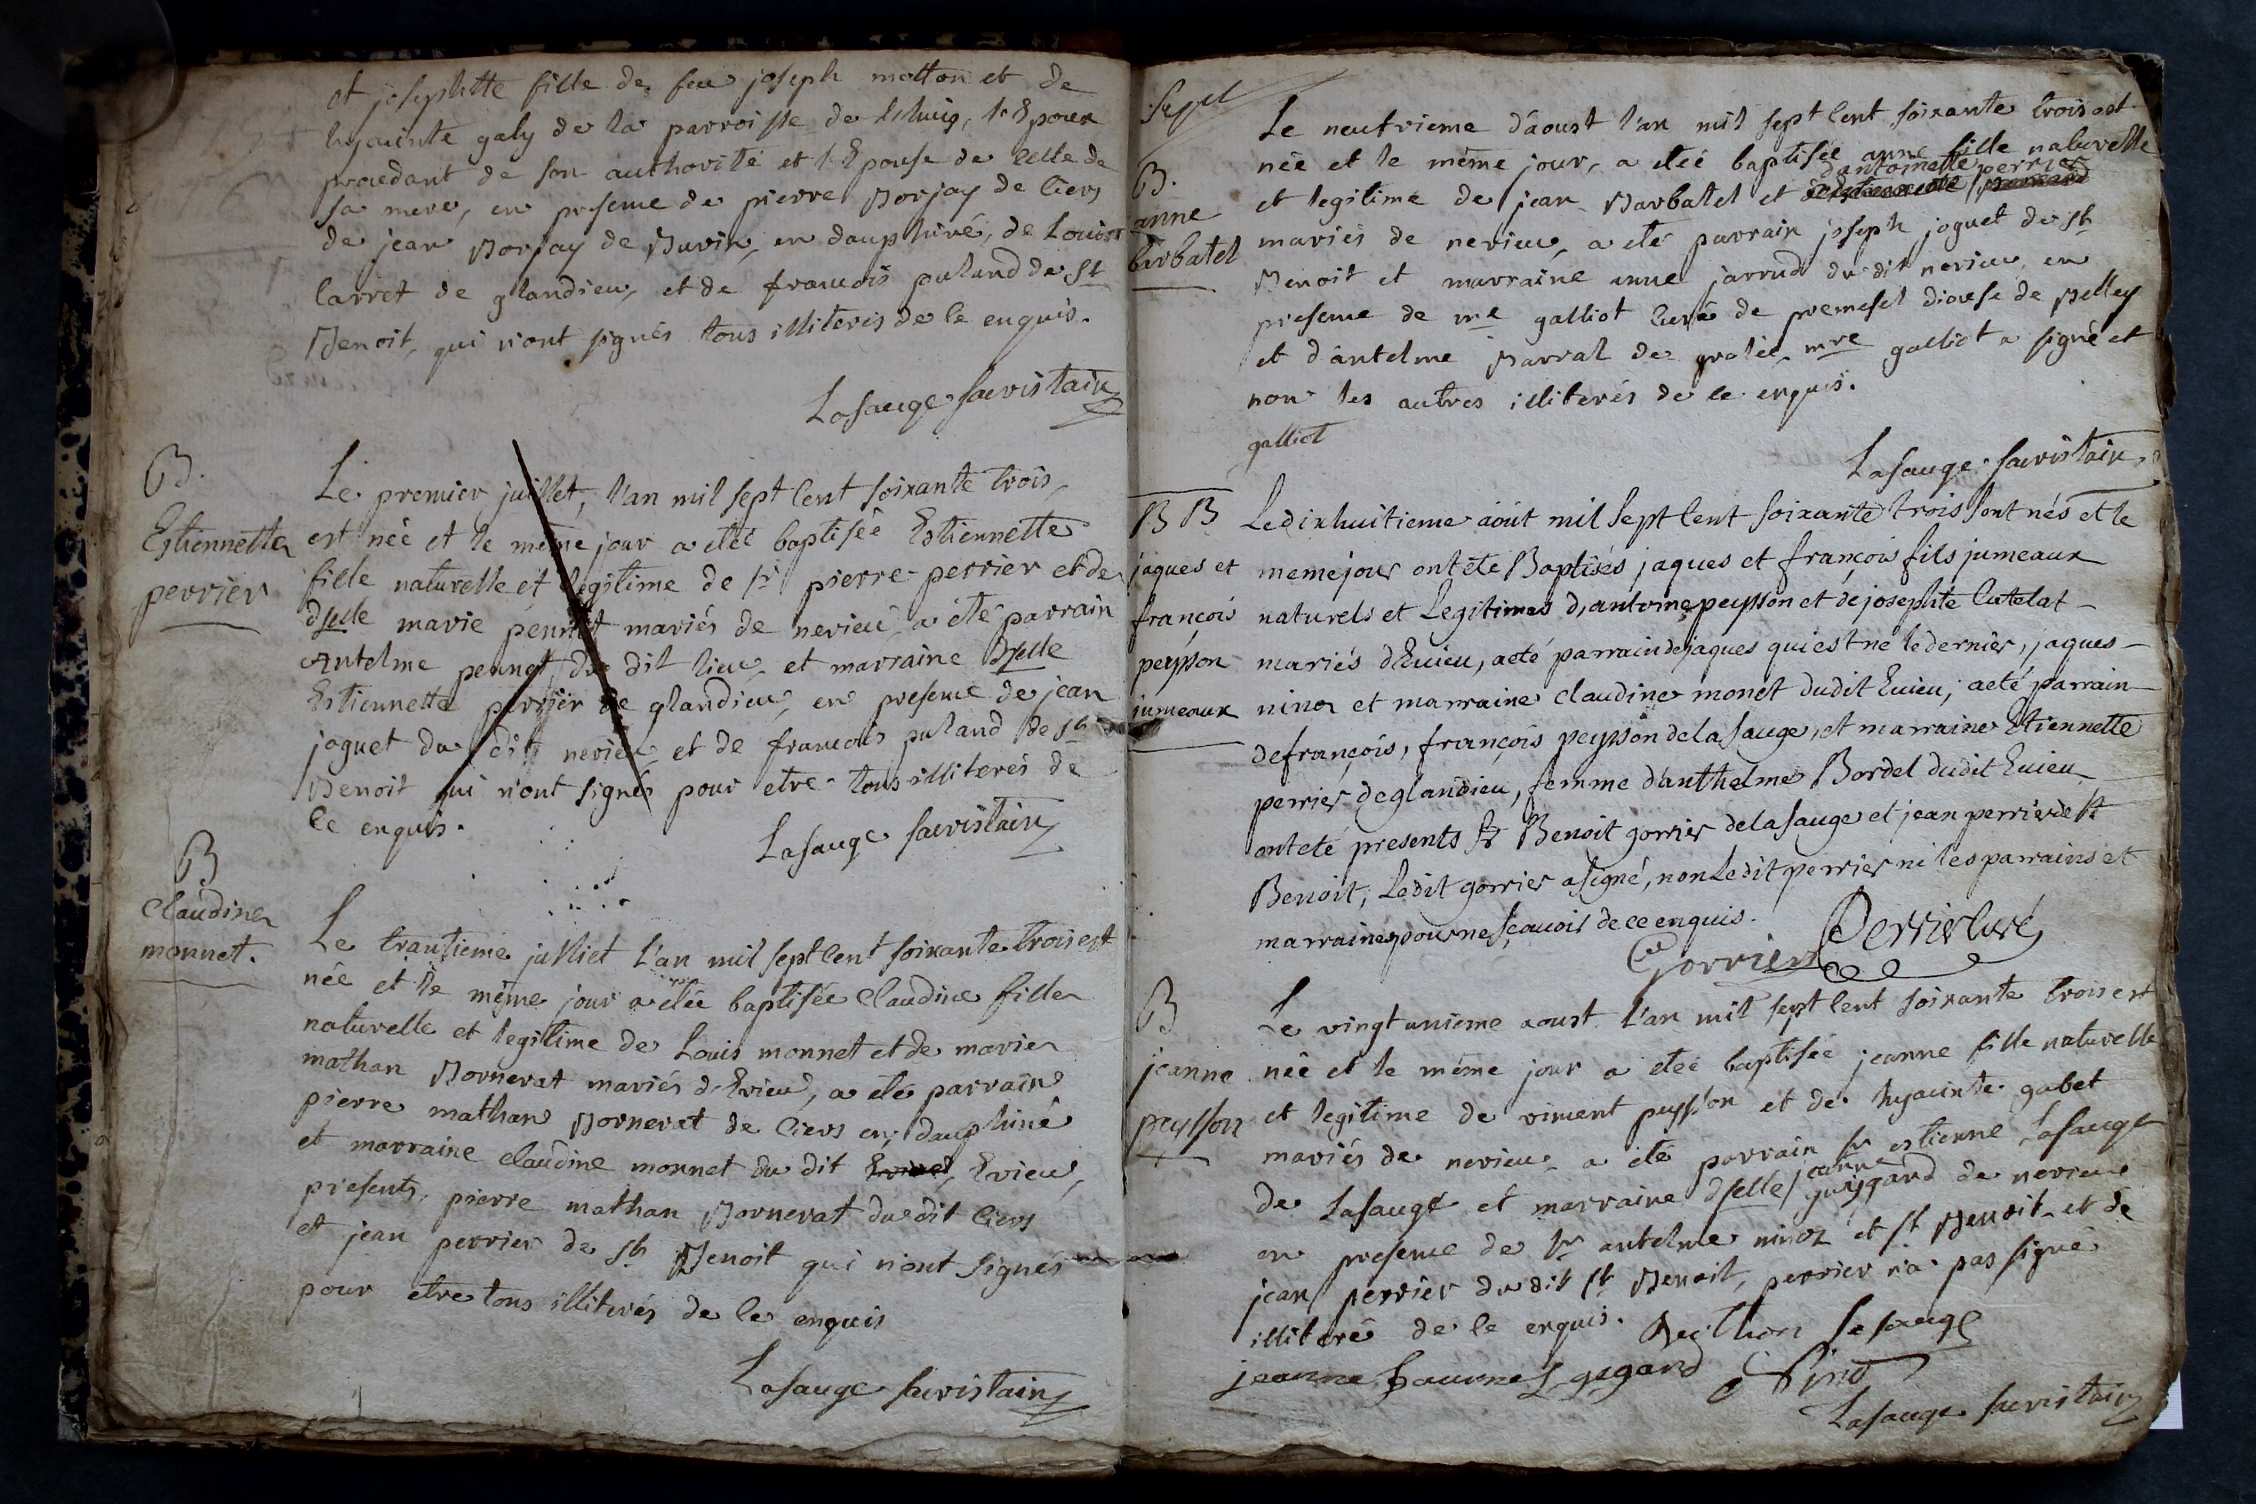 et josephtte fille de feu joseph motton et de
hyacinte galy de la parroisse de l'epoux
procedant de son authorité et l'Epouse de celle de
sa mere, en presence de pierre Borjay de Ciers
de jean Borjay de Buvin, en dauphiné, de Louis
Carret de glandieu, et de francois puland de St
Benoit, qui n'ont signés tous illiterés de ce enquis.
Lasauge sacristain
B.
Estiennette
perrier
Le premier juillet, l'an mil sept Cent soixante trois,
est née et le même jour a eteé baptisée Estiennette
fille naturelle et legitime de sr pierre perrier et de
dselle marie pennet mariés de nerieu, a été parrain
Antelme pennet du dit lieu, et marraine Dselle
Estiennette perrier de glandieu, en presence de jean
joguet du dit nerieu et de francois puland de St
Benoit qui n'ont signés pour etre tous illiterés de
Ce enquis.
Lasauge sacristain
B
Claudine
monnet.
Le trantieme julliet l'an mil sept Cent soixante trois est
née et le même jour a eteé baptisée Claudine fille
naturelle et legitime de Louis monnet et de marie
mathan Bornerat mariés d'Evieu, a été parrain
pierre mathan Bornerat de Ciers en dauphiné
et marraine Claudine monnet du dit Evieu,
presents, pierre mathan Bornerat du dit Ciers
et jean perrier de St Benoit qui n'ont signés
pour etre tous illiterés de Ce enquis
Lasauge sacristain
B.
anne
barbatel
Le neufvieme d'aoust l'an mil sept Cent soixante trois est
née et le même jour, a eteé baptisée anne fille naturelle
d'antoinette perrier
et legitime de jean Barbatel et
mariés de nerieu, a eté parrain joseph joguet de St
Benoit et marraine anne jarrud du dit nerieu en
presence de mre galliot Curé de premesel diocese de Belley
et d'antelme Barral de grolée mre galliot a signé et
non les autres illiterés de ce enquis.
galliot
Lasauge sacristain
B B
jaques et
françois
peysson
jumeaux
Le dixhuitieme août mil Sept Cent Soixante trois sont nés et le
meme jour ont eté Baptisés jaques et françois fils jumeaux
naturels et Legitimes d'antoine peysson et de josephte Cutelat
mariés d'Evieu, a eté parrain de jaques qui est né le dernier, jaques
ninoz et marraine claudine monet dudit Evieu, a eté parrain
de françois, françois peysson de la sauge, et marraine Etiennette
perrier de glandieu, femme d'anthelme Bordel dudit Evieu
ont eté presents Sr Benoit gorrier de la sauge et jean perrier de St
Benoit, Ledit gorrier a signé, non Ledit perrier ni les parrains et
marraines pour ne sçavoir de ce enquis.
Gorrier Perrier Curé
B
jeanne
peysson
Le vingt unieme aoust l'an mil sept Cent soixante trois est
née et le même jour a eteé baptisée jeanne fille naturelle
et legitime de vincent peysson et de hyacinte gabet
mariés de nerieu a été parrain sr estienne Lasauge
jeanne
de Lasauge et marraine dselle guygard de nerieu
en presence de sr antelme ninoz et St Benoit et de
jean perrier du dit St Benoit, perrier n'a pas signé
illiteré de Ce enquis.
Lasauge sacristain